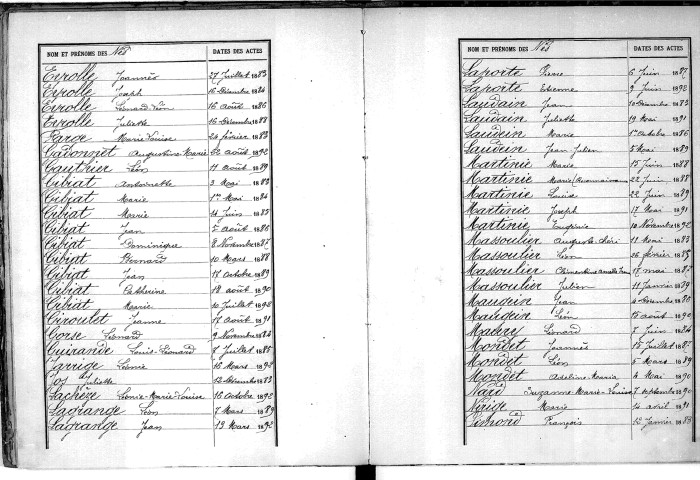 NOM ET PRÉNOMS DES Nés DATES DES ACTES
Eyrolle Joannès 27 Juillet 1883
Eyrolle Joseph 16 Décembre 1884
Eyrolle Léonard-Léon 16 Août 1886
Eyrolle Juliette 16 Décembre 1888
Farge Marie-Louise 24 février 1883
Augustine-Marie 22 août 1892
Gauthier Léon 11 août 1889
Gibiat Antoinette 3 Mai 1883
Gibiat Marie 1er Mai 1884
Gibiat Marie 14 Juin 1885
Gibiat Jean 5 août 1886
Gibiat Dominique 8 Novembre 1887
Gibiat Bernard 10 Mars 1888
Gibiat Jean 17 Octobre 1889
Gibiat Catherine 18 août 1890
Gibiat Marie 10 Juillet 1892
Giroulet Jeanne 17 août 1891
Gorse Léonard 9 Novembre 1884
Guirande Louis-Léonard 7 Juillet 1885
Léonie 16 Mars
Juliette 12 Décembre 1883
Lachèze Léonie-Marie-Louise 16 Octobre 1892
Lagrange Léon 7 Mars 1889
Lagrange Jean 13 Mars 1892
NOM ET PRÉNOMS DES Nés DATES DES ACTES
Laporte Pierre 6 Juin 1887
Laporte Etienne 9 Juin 1892
Laudain Jean 10 Décembre 1883
Laudain Juliette 19 Mai 1891
Laudrin Marie 1er Octobre 1886
Laudrin Jean Julien 5 Mai 1889
Martinie Marie 15 Juin 1888
Martinie Marie 22 Juin 1888
Martinie Louise 22 Juin 1889
Martinie Joseph 17 Mai 1891
Martinie Eugénie 10 Novembre 1892
Massoulier Auguste 11 Mai 1883
Massoulier Léon 26 février 1885
Massoulier Clémentine 17 mai 1887
Massoulier Julien 11 Janvier 1889
Maudein Jean 4 Décembre 1888
Maudein Léon 15 août 1890
Maury Léonard 7 Juin 1884
Mondet Joannès 15 Juillet 1882
Mondet Léon 5 Mars 1889
Mondet Adeline-Maria 4 Mai 1890
Nard Suzanne-Marie-Louise 7 Septembre 1890
Marie 14 avril 1891
François 12 Janvier 1883